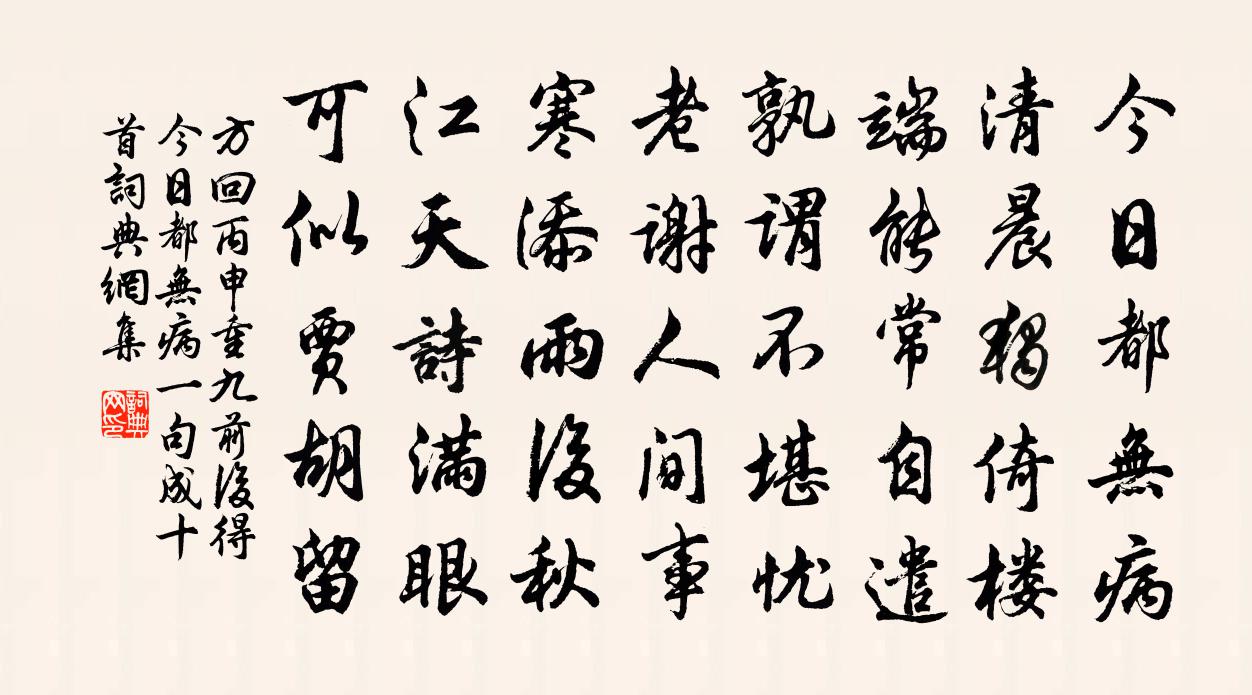 今日都無病
清晨獨倚楼
端能常自遣
孰謂不堪忧
老謝人間事
寒添雨後秋
江天詩满眼
可似賈胡留
方回丙申重九前後得
今日都無病一句成十
首詞典網集
詞典网印